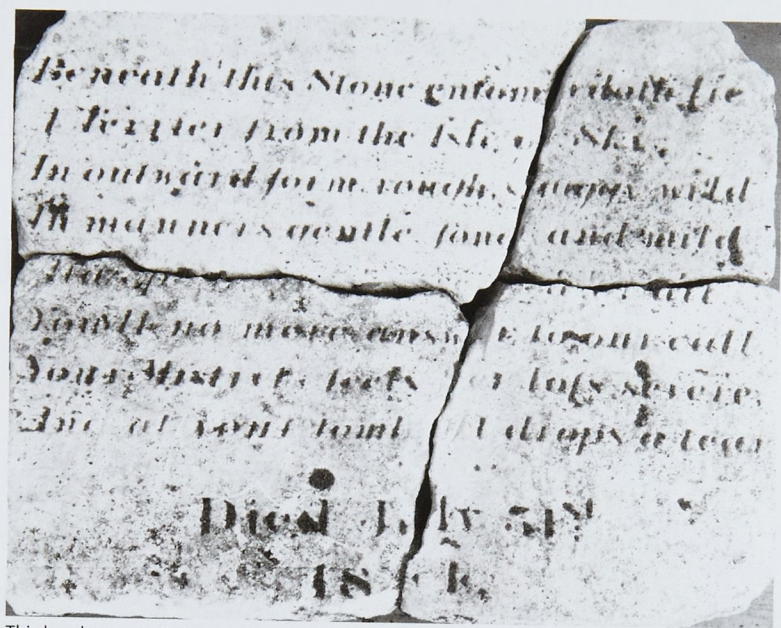 Beneath this Stone entom doth lie
A Terrier from the Isle Sky,
In outward form rough, wild
In manners gentle fond and mild
You'll no more to your call
Your Mistress feels loss severe,
And at your tomb drops a tear
Died July 31st
18